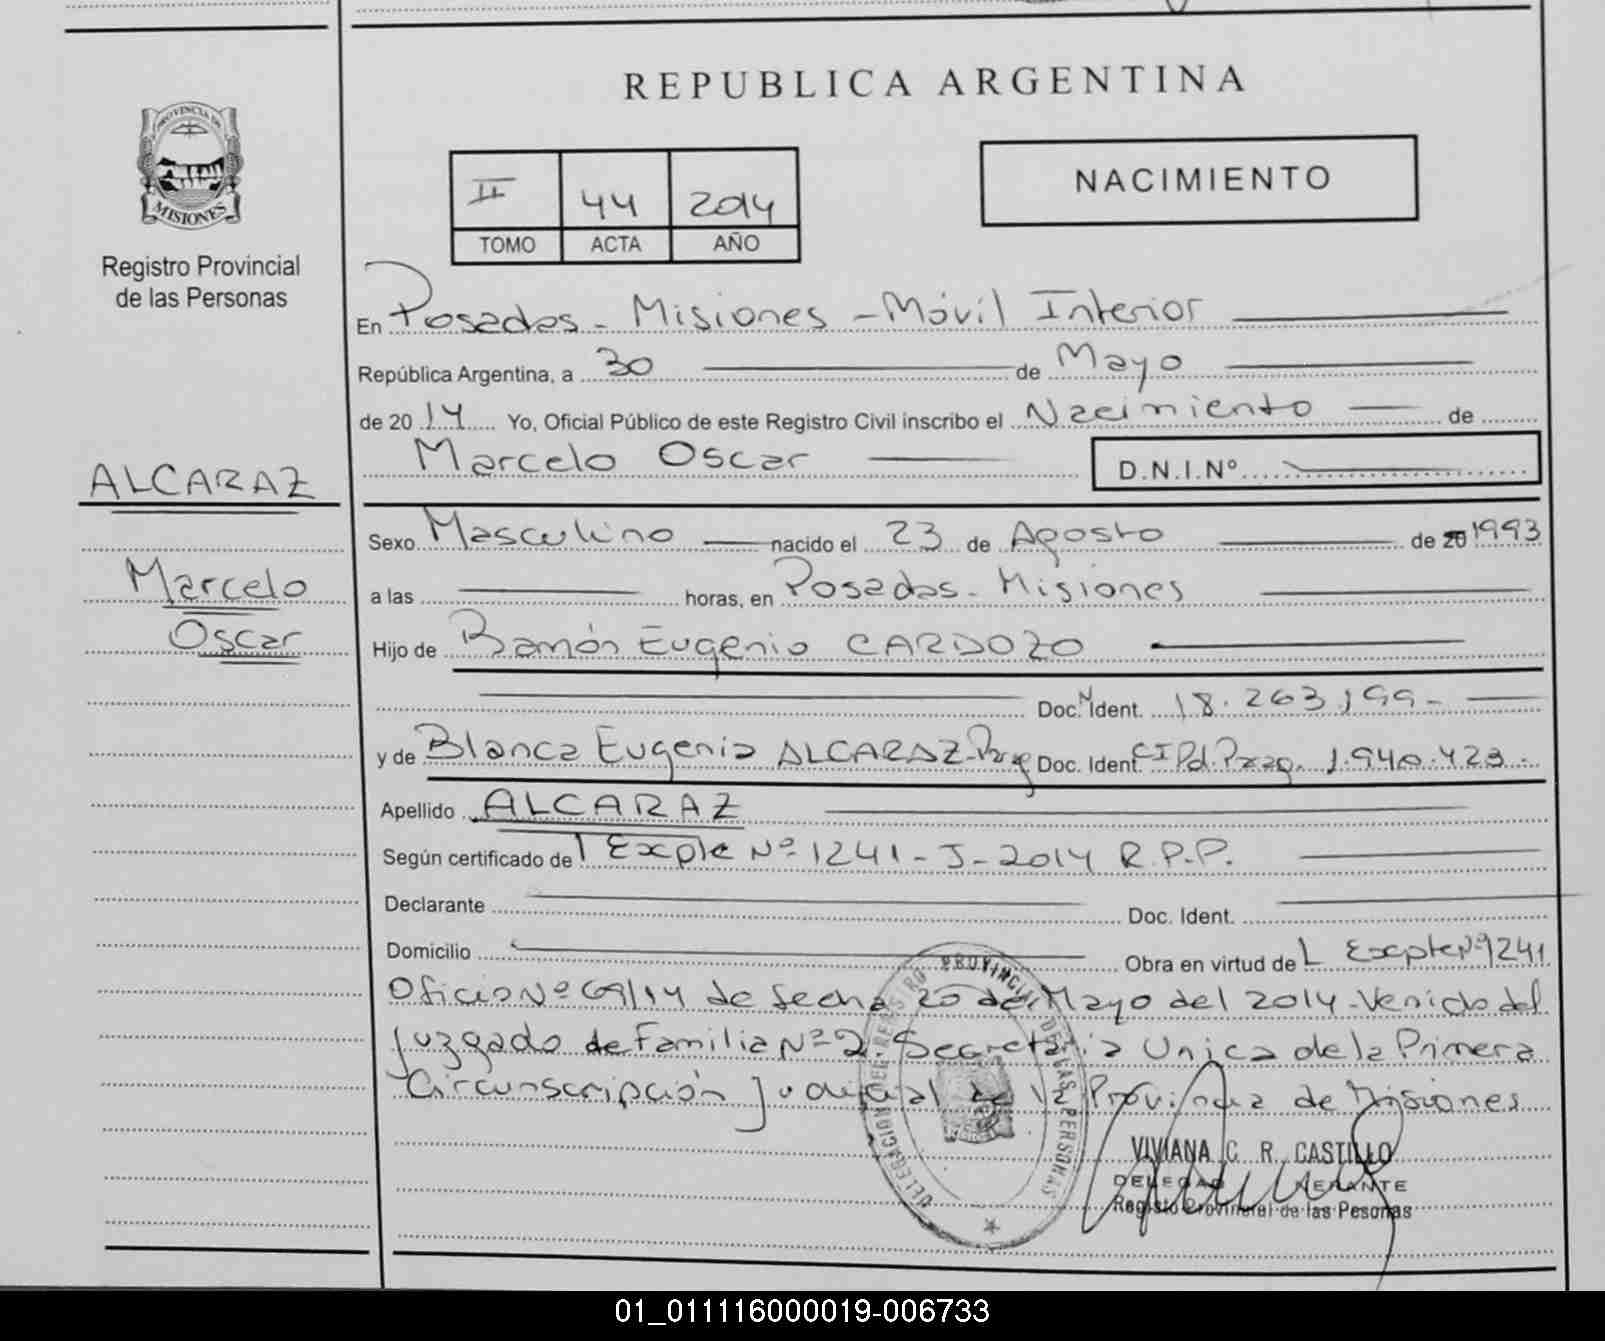 REPUBLICA ARGENTINA
PROVINCIA DE
MISIONES
Registro Provincial
de las Personas
II 44 2014
TOMO ACTA AÑO
NACIMIENTO
En Posadas - Misiones - Móvil Interior
República Argentina, a 30 de Mayo
de 2014 Yo, Oficial Público de este Registro Civil inscribo el Nacimiento de
Marcelo Oscar D.N.I.Nº
ALCARAZ
Marcelo
Oscar
Sexo Masculino nacido el 23 de Agosto de 20 1993
a las horas, en Posadas - Misiones
Hijo de Ramón Eugenio CARDOZO
Doc. N Ident. 18.263.199-
y de Blanca Eugenia ALCARAZ-Parg Doc. Ident. CI Pol. Parag. 1.940.423-
Apellido ALCARAZ
Según certificado de l Expte Nº 1241-J-2014 R.P.P.
Declarante Doc. Ident.
Domicilio Obra en virtud de L Expte Nº 1241
Oficio Nº 69/14 de fecha 20 de Mayo del 2014 - Venido del
Juzgado de Familia Nº 2. Secretaria Unica de la Primera
Circunscripción Judicial de la Provincia de Misiones
DELEGACION DEL REGISTRO PROVINCIAL DE LAS PERSONAS
VIVIANA C. R. CASTILLO
Registo Provincial de las Pesonas
01_011116000019-006733